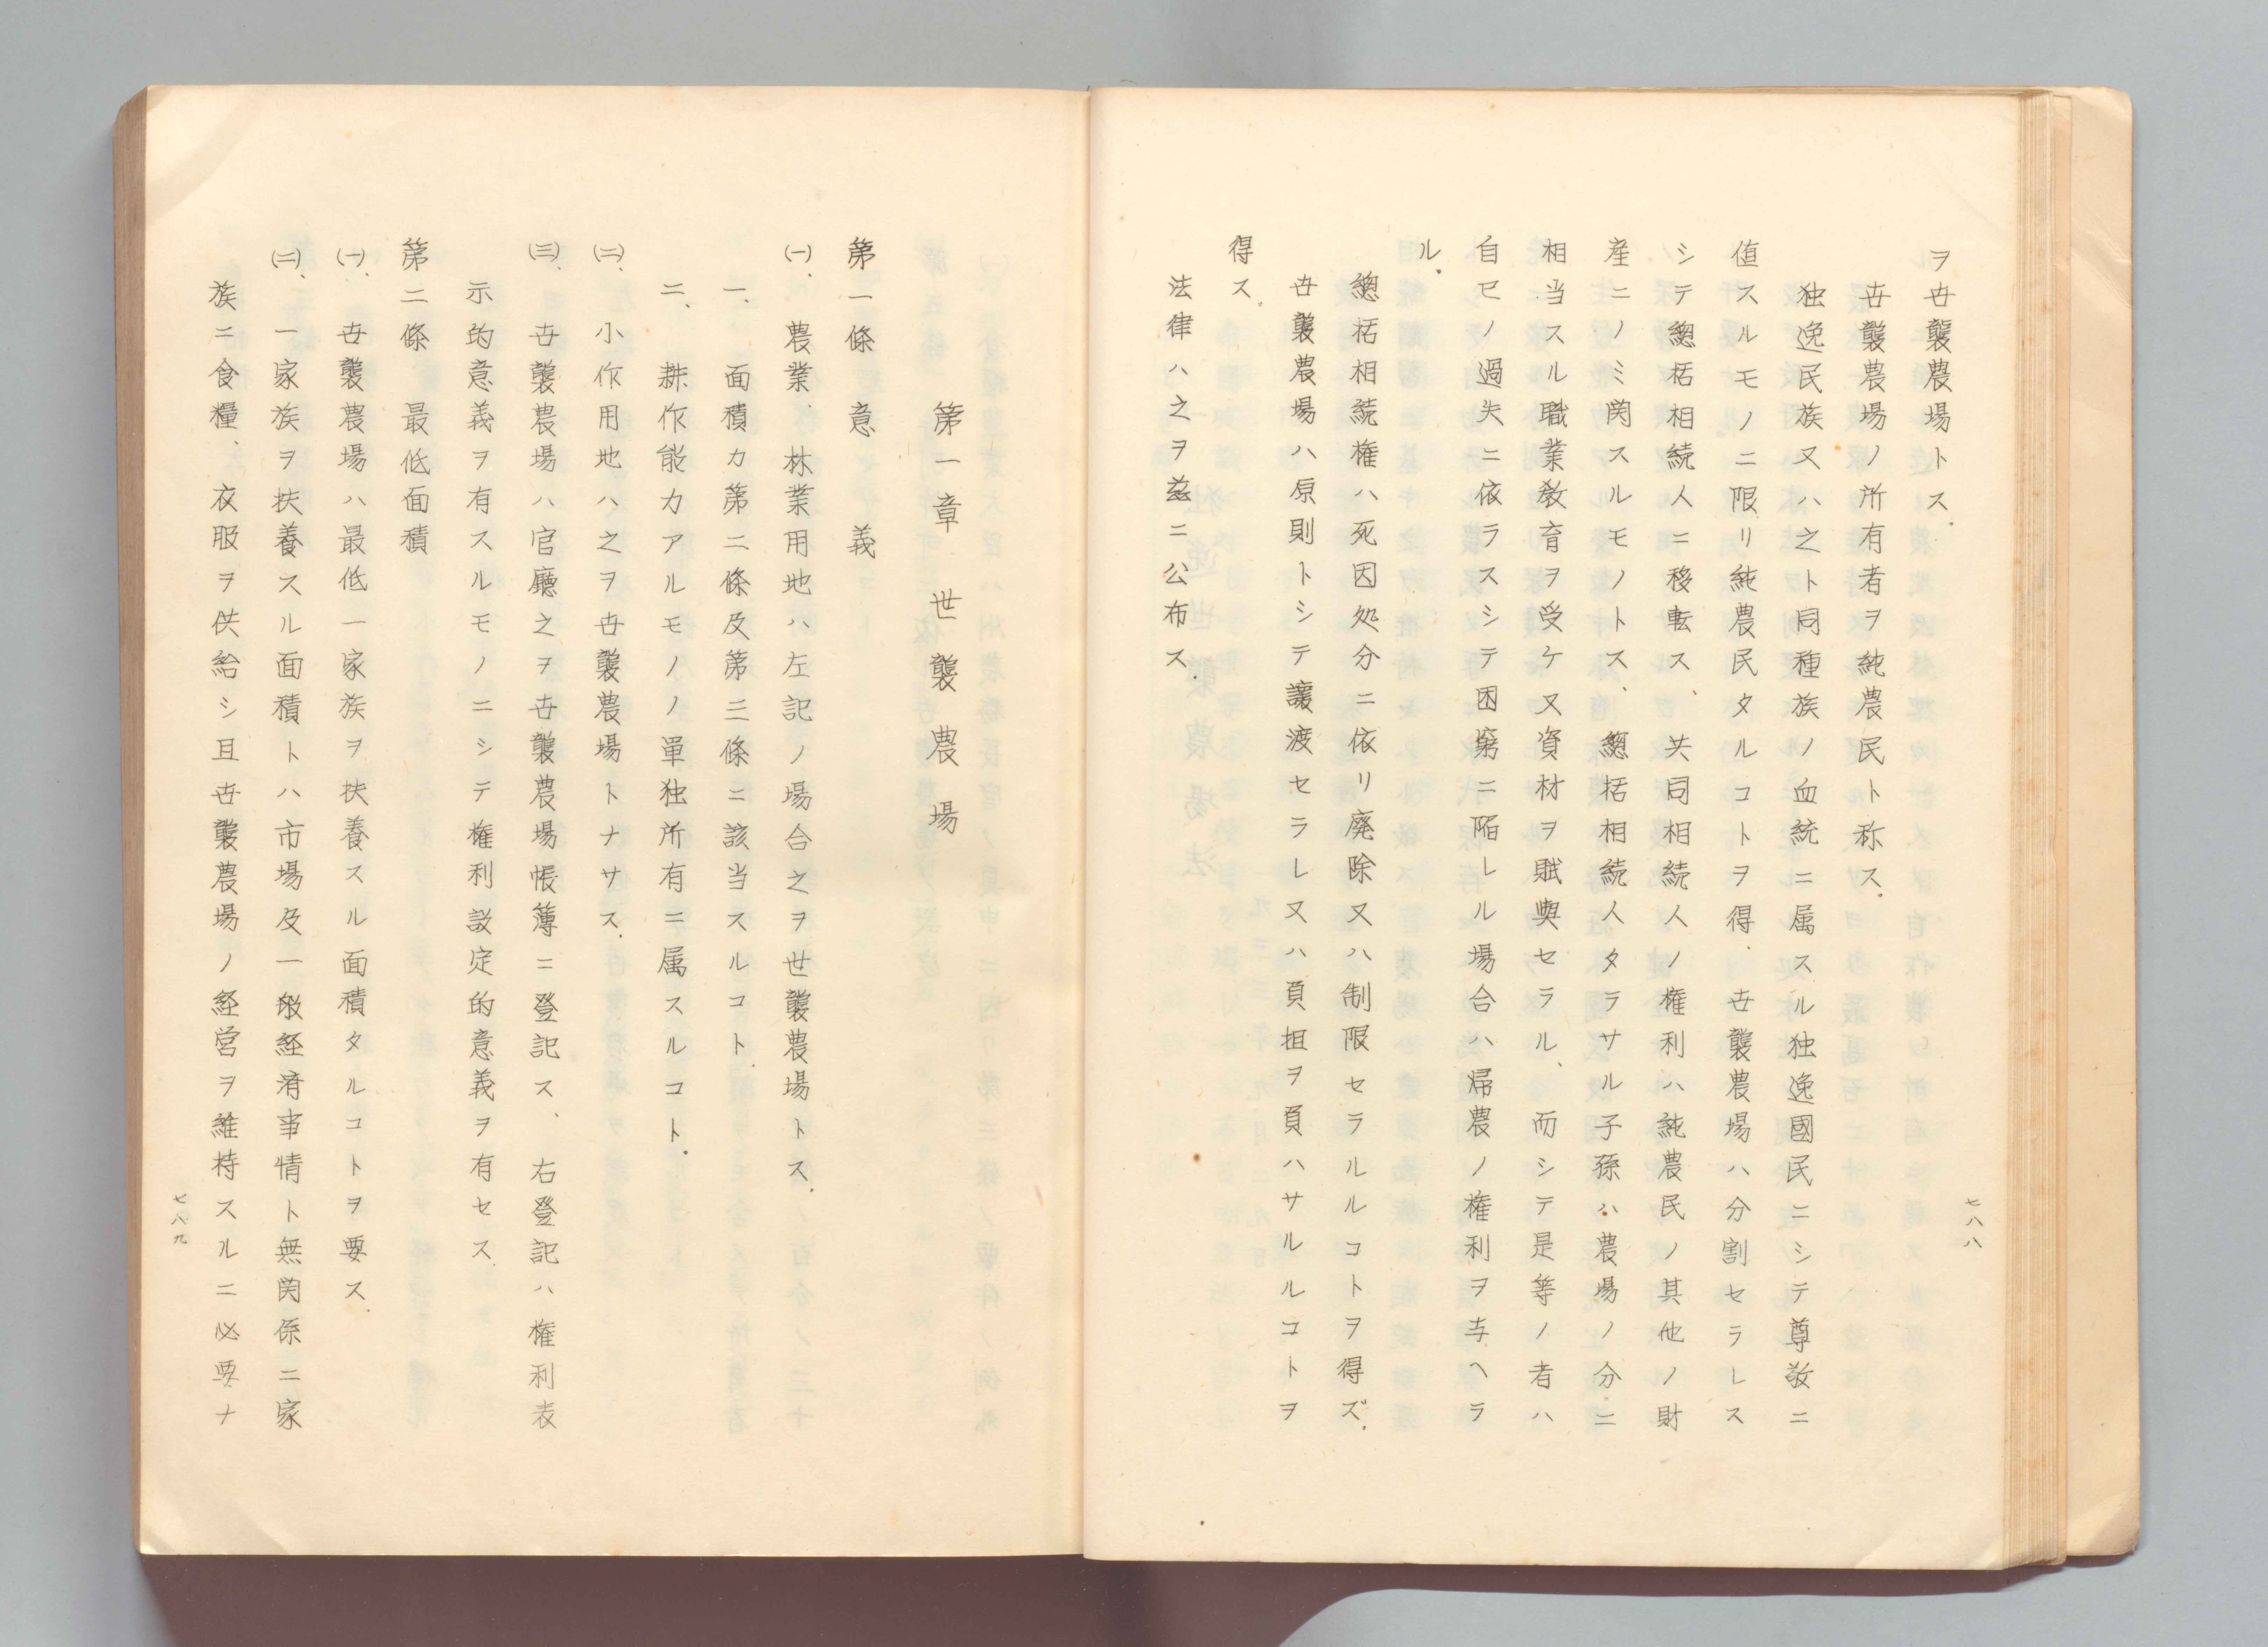 ヲ世襲農場トス.
世襲農場ノ所有者ヲ純農民ト称ス.
独逸民族又ハ之ト同種族ノ血統ニ属スル独逸國民ニシテ尊敬ニ
値スルモノニ限リ純農民タルコトヲ得.世襲農場ハ分割セラレス
シテ總括相続人ニ移転ス、共同相続人ノ権利ハ純農民ノ其他ノ財
産ニノミ関スルモノトス、總括相続人タラサル子孫ハ農場ノ分ニ
相当スル職業敎育ヲ受ケ又資材ヲ賦與セラル、而シテ是等ノ者ハ
自己ノ過失ニ依ラスシテ困窮ニ陥レル場合ハ帰農ノ権利ヲ与ヘラ
ル.
總括相続権ハ死因処分ニ依リ廃除又ハ制限セラルルコトヲ得ズ.
世襲農場ハ原則トシテ讓渡セラレ又ハ負担ヲ負ハサルルコトヲ
得ス.
法律ハ之ヲ茲ニ公布ス.
七八八
第一章 世襲農場
第一條 意義
㈠、農業、林業用地ハ左記ノ場合之ヲ世襲農場トス.
一、面積カ第二條及第三條ニ該当スルコト.
二、耕作能力アルモノノ單独所有ニ属スルコト.
㈡、小作用地ハ之ヲ世襲農場トナサス.
㈢、世襲農場ハ官廳之ヲ世襲農場帳簿ニ登記ス、右登記ハ権利表
示的意義ヲ有スルモノニシテ権利設定的意義ヲ有セス.
第二條 最低面積
㈠、世襲農場ハ最低一家族ヲ扶養スル面積タルコトヲ要ス.
㈡、一家族ヲ扶養スル面積トハ市場及一般経済事情ト無関係ニ家
族ニ食糧、衣服ヲ供給シ且世襲農場ノ経営ヲ維持スルニ必要ナ
七八九